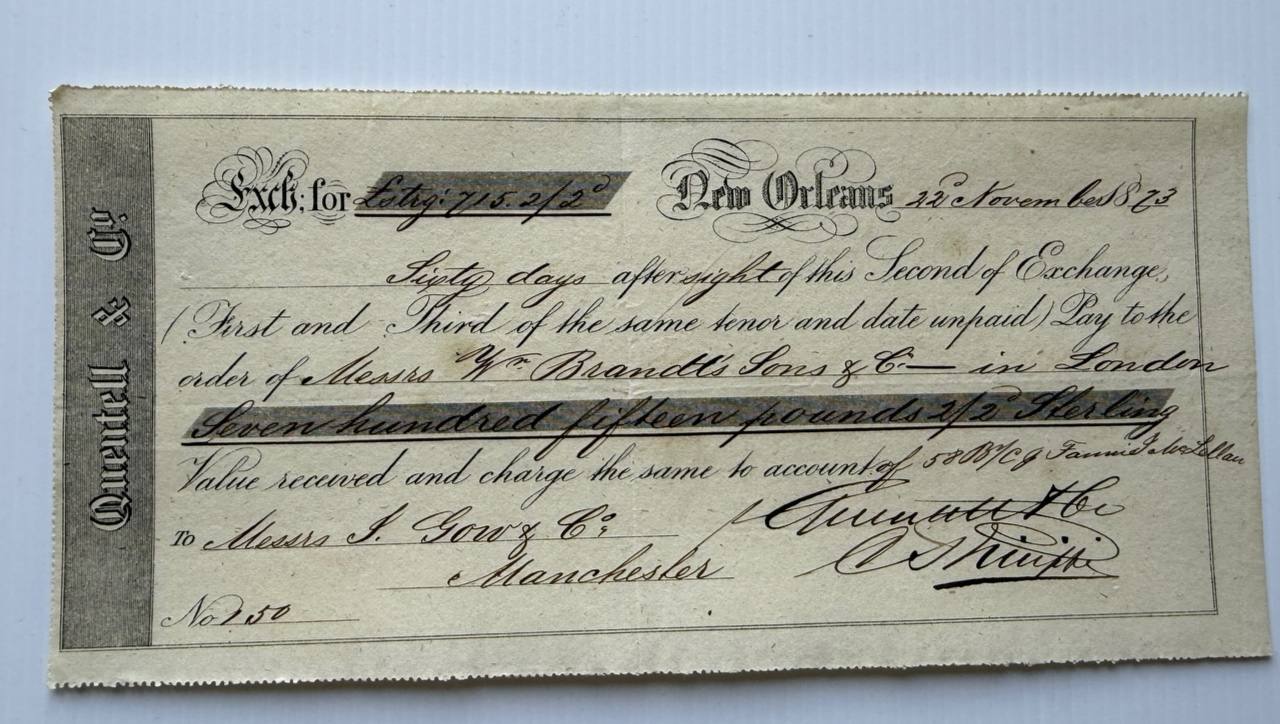 Quentell & Co.
Exch: for £strg: 715.2/2d New Orleans 22d November 1873
Sixty days after sight of this Second of Exchange,
(First and Third of the same tenor and date unpaid) Pay to the
order of Messrs Wm Brandt's Sons & Co — in London
Seven hundred fifteen pounds 2/2d Sterling
Value received and charge the same to account of 58 B/C Fannie J McLellan
To Messrs J. Gow & Co. Quentell & Co
Manchester
No 150